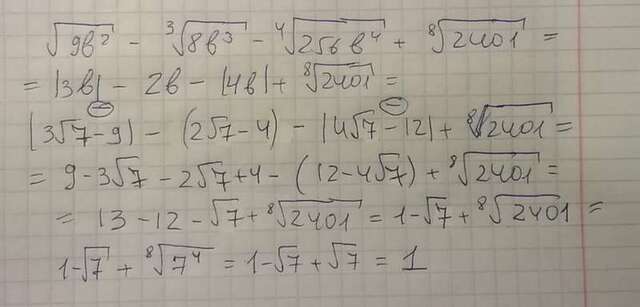 √9b² - ³√8b³ - ⁴√256b⁴ + ⁸√2401 =
= |3b| - 2b - |4b| + ⁸√2401 =
|3√7-9| - (2√7-4) - |4√7-12| + ⁸√2401 =
= 9-3√7-2√7+4-(12-4√7) + ⁸√2401 =
= 13-12-√7+⁸√2401 = 1-√7+⁸√2401 =
1-√7+⁸√7⁴ = 1-√7+√7 = 1